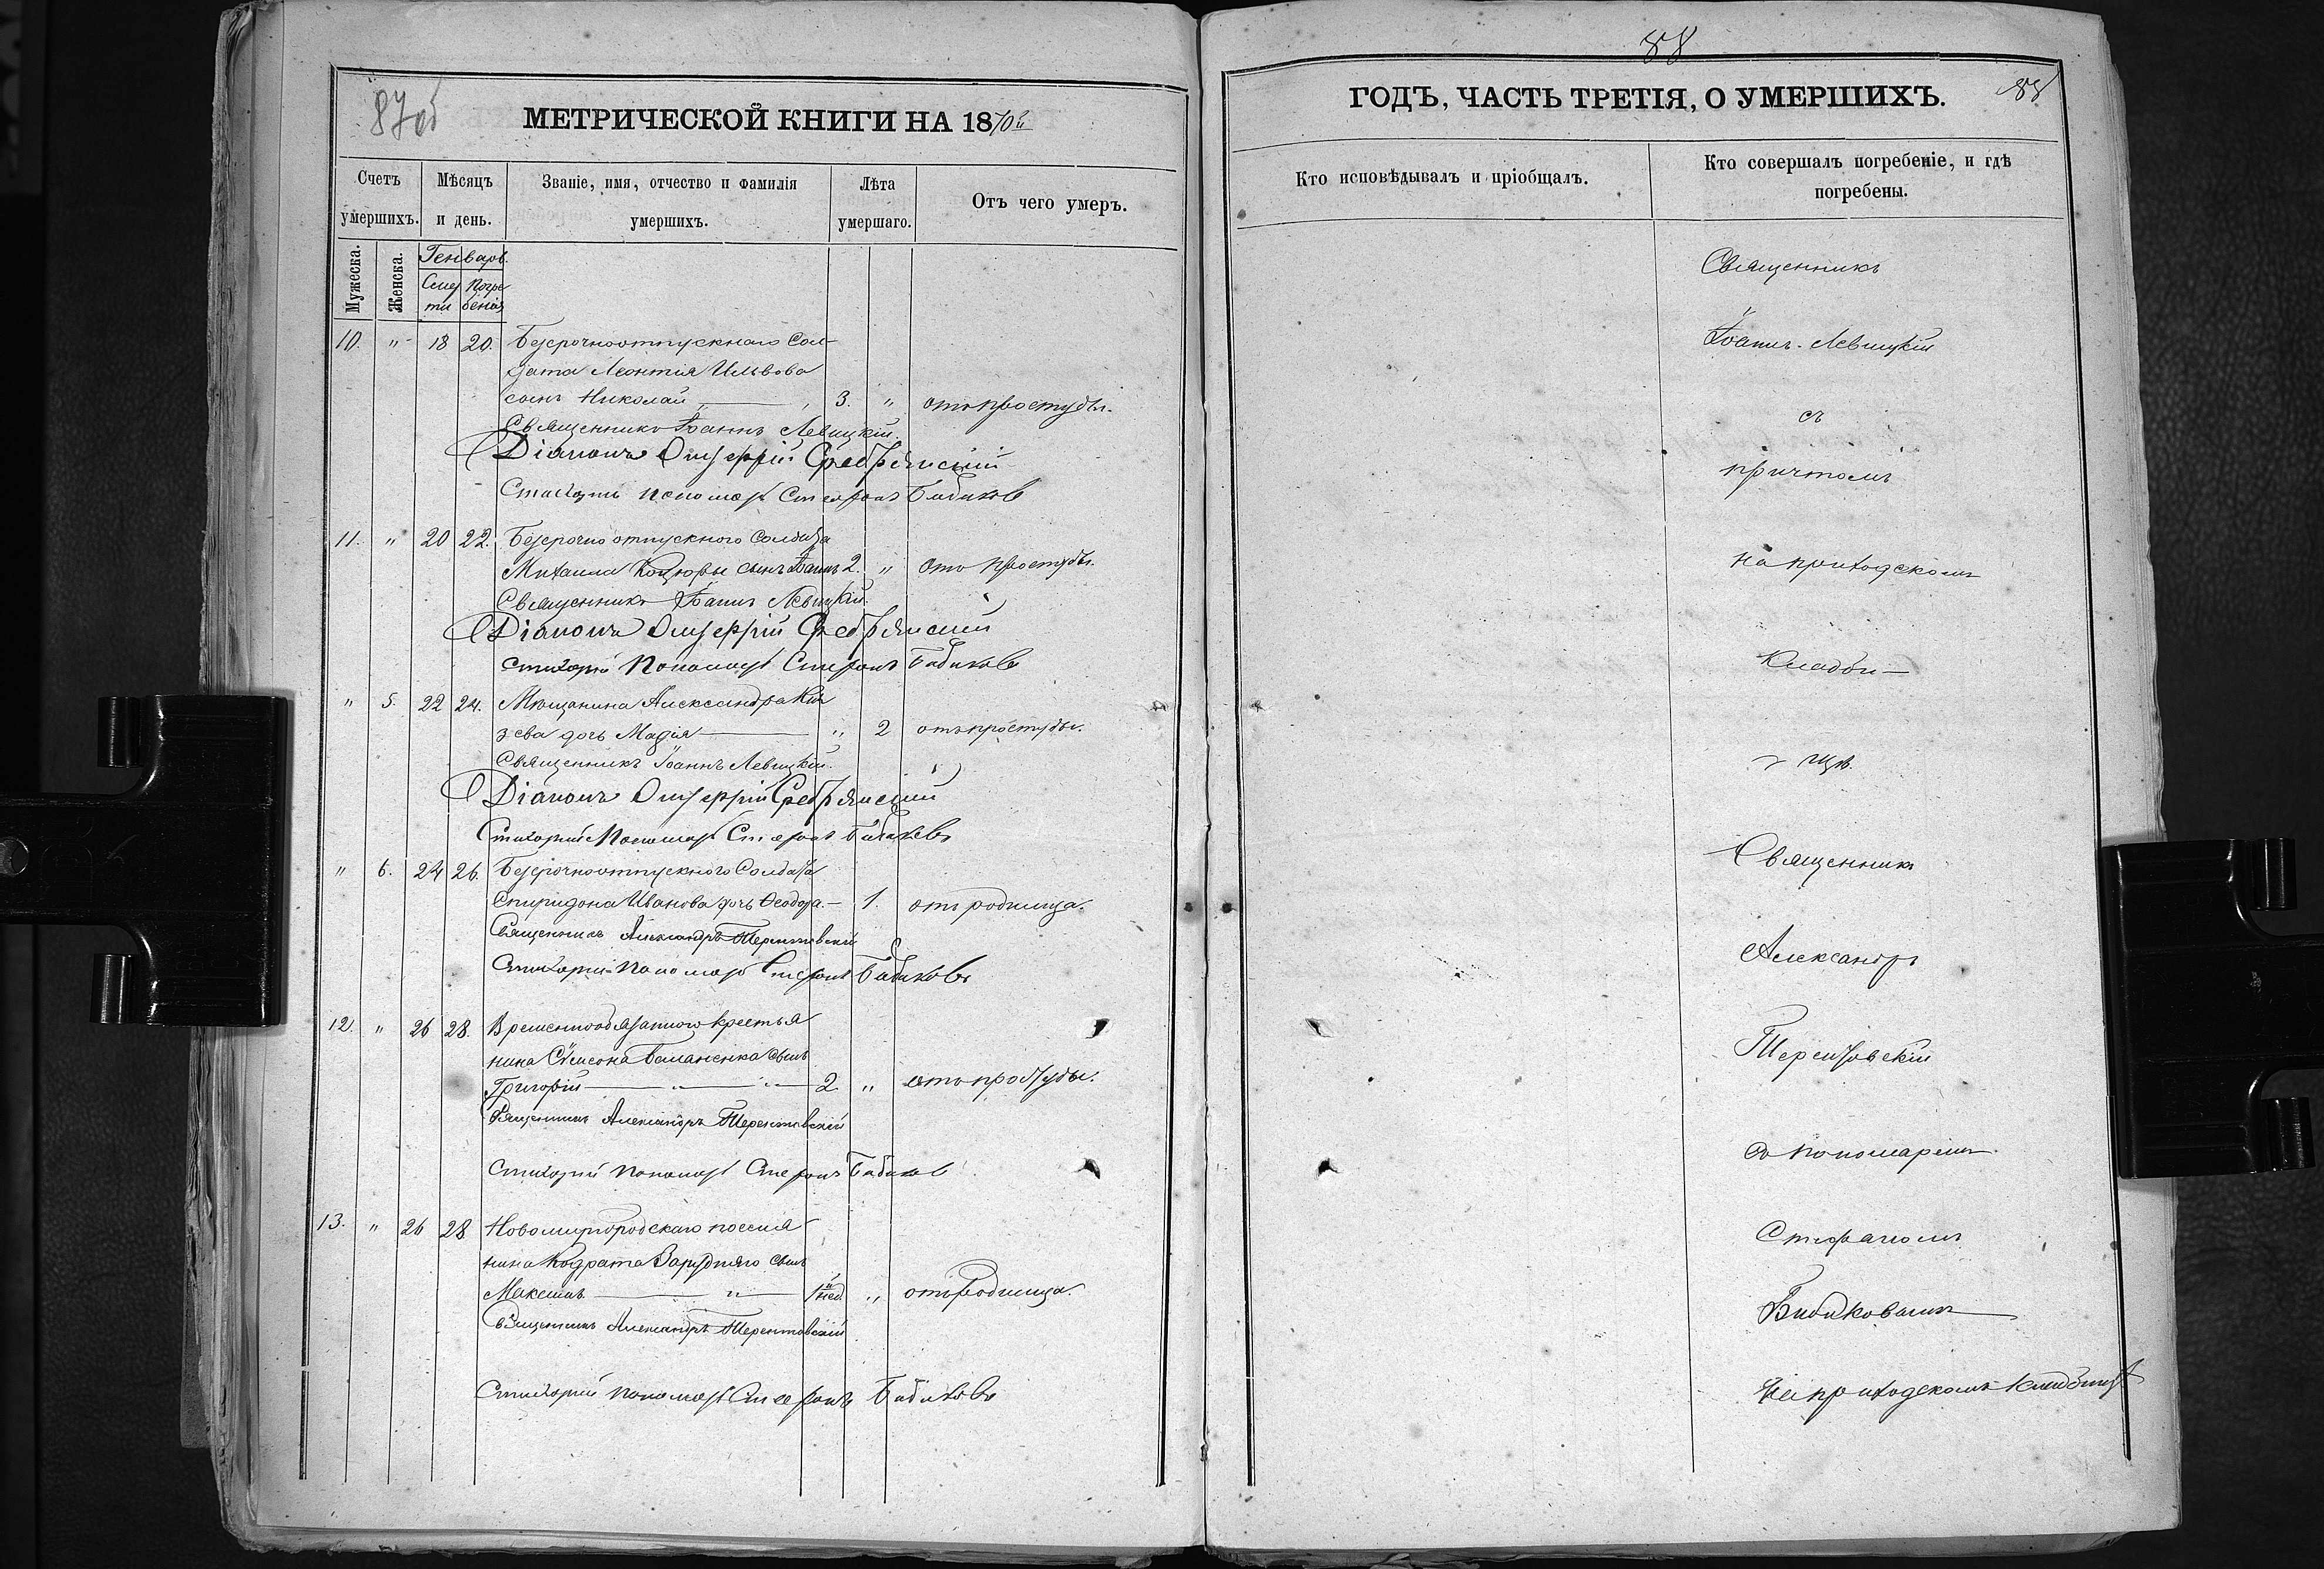 87об
МЕТРИЧЕСКОЙ КНИГИ НА 1870й
Счетъ умершихъ.
Мѣсяцъ и день.
Званіе, имя, отчество и фамилія умершихъ.
Лѣта умершаго.
Отъ чего умеръ.
Мужеска.
Женска.
Генварь.
Смер Погре
ти бенія
10. " 18 20. Безсрочноотпускнаго Сол-
дата Леонтия Ильвова
сынъ Николай 3. " отъ простуды.
Священникъ Іоаннъ Левицкій.
Діаконъ
Пономарь Стефанъ Бибиковъ
11. " 20 22. Безсрочно отпускного Солдата
Михаила сынъ Іоаннъ 2. " отъ простуды.
Священникъ Іоаннъ Левицкій.
Діаконъ
Стихарный Пономарь Стефанъ Бибиковъ
" 5. 22 24. Мѣщанина Александра Кня
зева дочь Марія " 2 отъ простуды.
Священникъ Іоаннъ Левицкій.
Діаконъ
Стихарный Пономарь Стефанъ Бибиковъ
" 6. 24 26. Безсрочноотпускного Солдата
Спиридона Иванова дочь Ѳеодора. 1. отъ родимца.
Священникъ Александръ Терентовскій
Стихарный Пономарь Стефанъ Бибиковъ
12. " 26 28. Временнообязанного крестья
нина Сѵмеона сынъ
Григорій " " 2 " отъ простуды.
Священникъ Александръ Терентовскій
Стихарный Пономарь Стефанъ Бибиковъ
13. " 26 28 Новомиргородскаго посели
нина Кодрата Зарудняго сынъ
Максимъ " 1 нед. " отъ родимца.
Священникъ Александръ Терентовскій
Стихарный Пономарь Стефанъ Бибиковъ
88
ГОДЪ, ЧАСТЬ ТРЕТІЯ, О УМЕРШИХЪ.
88
Кто исповѣдывалъ и пріобщалъ.
Кто совершалъ погребеніе, и гдѣ
погребены.
Священникъ
Іоаннъ Левицкій
съ
причтомъ
на приходскомъ
кладби-
щѣ.
Священникъ
Александръ
Терентовскій
съ пономаремъ
Стефаномъ
Бибиковымъ
на приходскомъ кладбищѣ